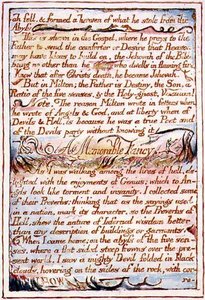 ah fell, & formed a heaven of what he stole from the
Abyss
This is shewn in the Gospel, where he prays to the
Father to send the comforter or Desire that Reason
may have Ideas to build on, the Jehovah of the Bible
being no other than he who dwells in flaming fire
Know that after Christs death, he became Jehovah.
But in Milton; the Father is Destiny, the Son, a
Ratio of the five senses. & the Holy-ghost, Vacuum!
Note. The reason Milton wrote in fetters when
he wrote of Angels & God, and at liberty when of
Devils & Hell, is because he was a true Poet and
of the Devils party without knowing it
A Memorable Fancy.
As I was walking among the fires of hell, de-
-lighted with the enjoyments of Genius; which to An-
-gels look like torment and insanity. I collected some
of their Proverbs: thinking that as the sayings used
in a nation, mark its character, so the Proverbs of
Hell, shew the nature of Infernal wisdom better
than any description of buildings or garments.
When I came home; on the abyss of the five sen-
-ses, where a flat sided steep frowns over the pre-
-sent world. I saw a mighty Devil folded in black
clouds, hovering on the sides of the rock, with cor-